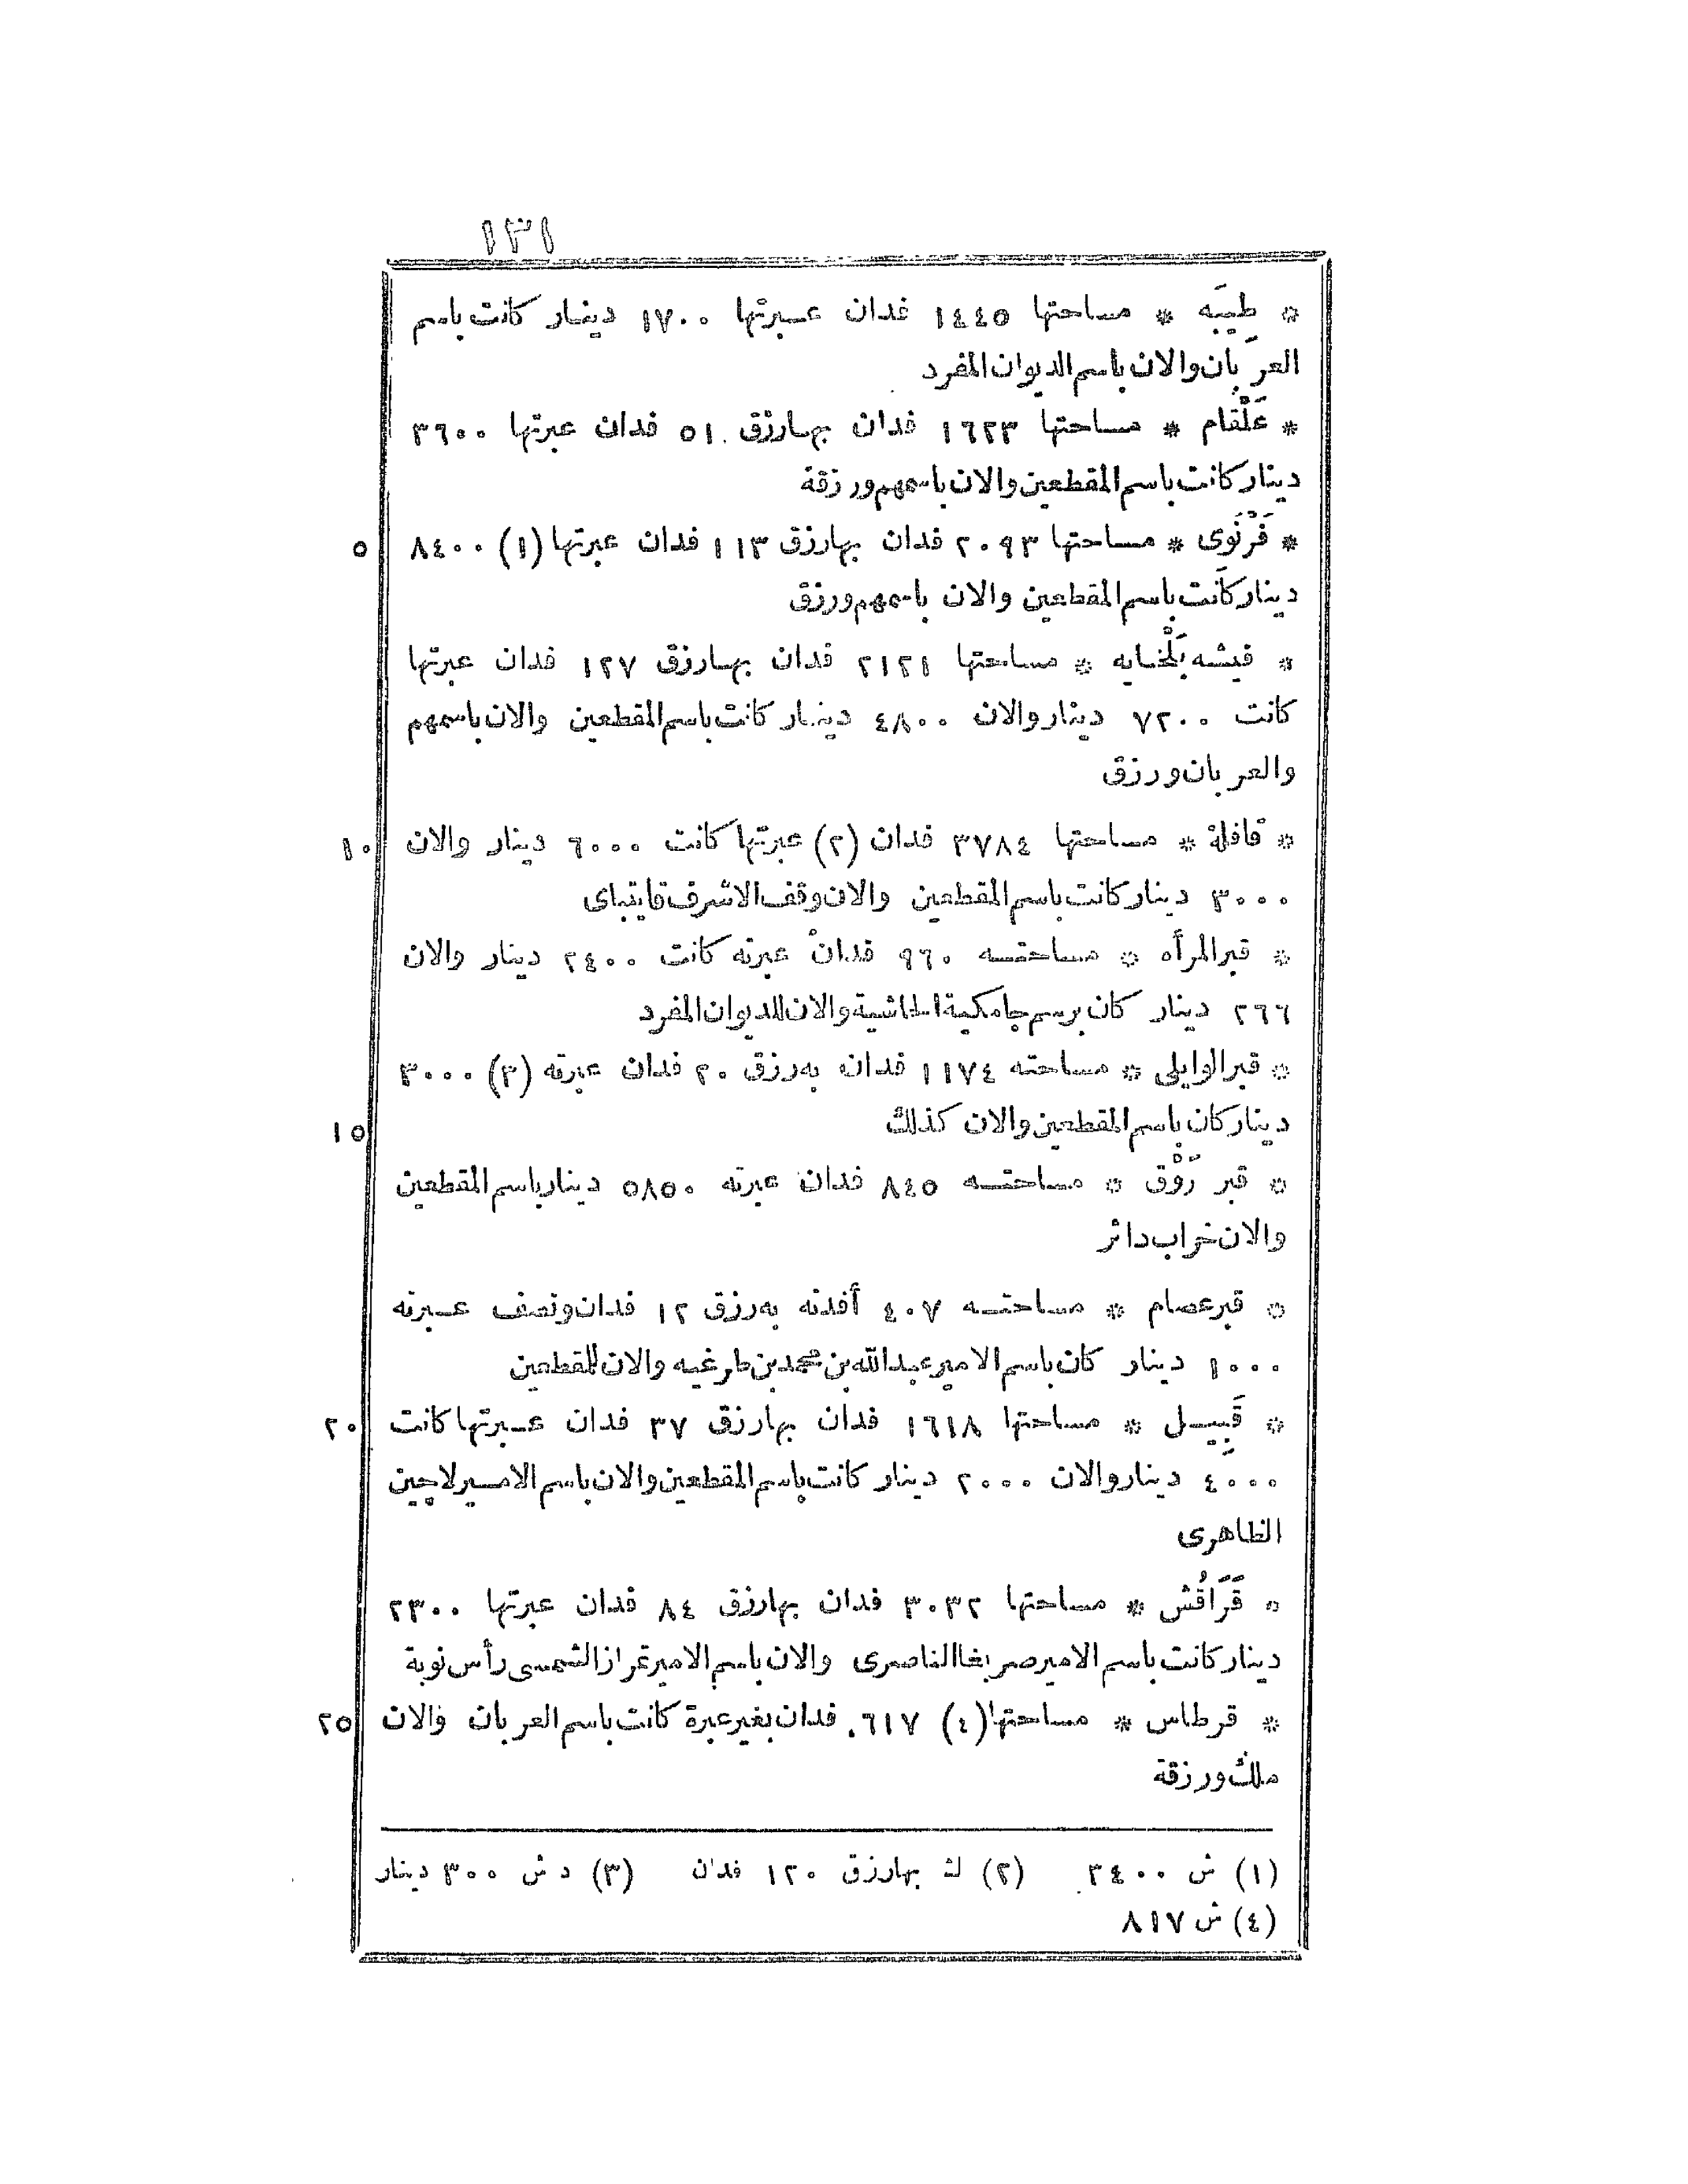 ١٣١
* طِيبَه * مساحتها ١٤٤٥ فدان عبرتها ١٧٠٠ دينار كانت باسم
العربان والان باسم الديوان المفرد
* عَلْقَام * مساحتها ١٦٢٣ فدان بها رزق ٥١ فدان عبرتها ٣٦٠٠
دينار كانت باسم المقطعين والان باسمهم ورزقة
٥ * فَرْنَوَى * مساحتها ٢٠٩٣ فدان بها رزق ١١٣ فدان عبرتها (١) ٨٤٠٠
دينار كانت باسم المقطعين والان باسمهم ورزق
* فيشه بَلْخايه * مساحتها ٢١٢١ فدان بها رزق ١٢٧ فدان عبرتها
كانت ٧٢٠٠ دينار والان ٤٨٠٠ دينار كانت باسم المقطعين والان باسمهم
والعربان ورزق
١٠ * قافلة * مساحتها ٣٧٨٤ فدان (٢) عبرتها كانت ٦٠٠٠ دينار والان
٣٠٠٠ دينار كانت باسم المقطعين والان وقف الاشرف قايتباى
* قبر المرأه * مساحته ٩٦٠ فدان عبرته كانت ٢٤٠٠ دينار والان
٢٦٦ دينار كان برسم جامكية الحاشية والان للديوان المفرد
* قبر الوايلى * مساحته ١١٧٤ فدان به رزق ٢٠ فدان عبرته (٣) ٣٠٠٠
١٥ دينار كان باسم المقطعين والان كذلك
* قبر رَوْق * مساحته ٨٤٥ فدان عبرته ٥٨٥٠ دينار باسم المقطعين
والان خراب داثر
* قبر عصام * مساحته ٤٠٧ أفدنه به رزق ١٢ فدان ونصف عبرته
١٠٠٠ دينار كان باسم الامير عبد الله بن محمد بن طرغيه والان للمقطعين
٢٠ * قَبِيل * مساحتها ١٦١٨ فدان بها رزق ٣٧ فدان عبرتها كانت
٤٠٠٠ دينار والان ٢٠٠٠ دينار كانت باسم المقطعين والان باسم الامير لاجين
الظاهرى
* قَرَاقُش * مساحتها ٣٠٣٢ فدان بها رزق ٨٤ فدان عبرتها ٢٣٠٠
دينار كانت باسم الامير صربغا الناصرى والان باسم الامير تمراز الشمسى رأس نوبة
٢٥ * قرطاس * مساحتها (٤) ٦١٧ فدان بغير عبرة كانت باسم العربان والان
ملك ورزقة
(١) ش ٣٤٠٠ (٢) ك بها رزق ١٢٠ فدان (٣) د ش ٣٠٠ دينار
(٤) ش ٨١٧